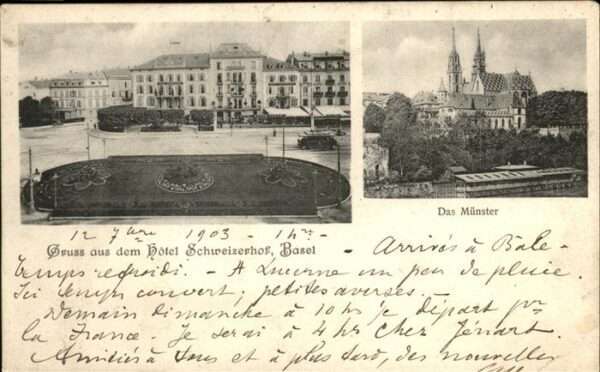 Das Münster
12 7bre 1903 - 1h -
Gruss aus dem Hôtel Schweizerhof, Basel
- Arrivés à Bâle -
temps refroidi. - A Lucerne un peu de pluie.
Ici temps couvert, petites averses. -
Demain dimanche à 10 hrs je départ pr
la France. Je serai à 4 hrs chez
Amitiés à tous et à plus tard, des nouvelles